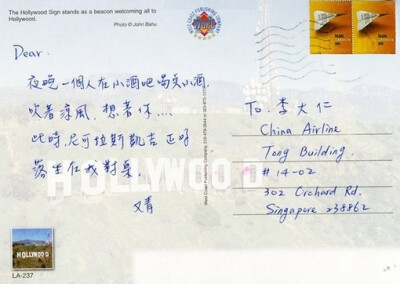 The Hollywood Sign stands as a beacon welcoming all to
Hollywood.
Photo © John Bahu
Dear.
夜晚一個人在小酒吧喝點小酒,
吹著涼風,想著你....
此時,尼可拉斯凱吉正好
落坐在我對桌。
又青
To. 李大仁
China Airline
Tong Building.
#14-02
302 Orchard Rd.
Singapore 238862
HOLLYWOOD
HOLLYWOOD
LA-237